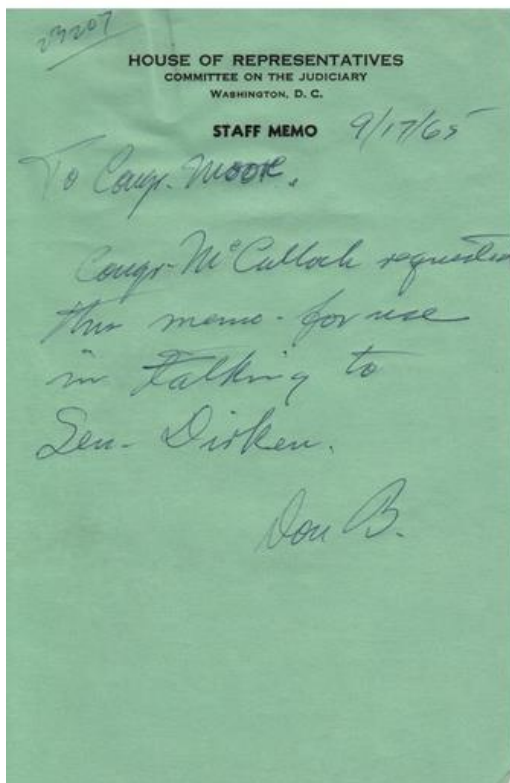 27207
HOUSE OF REPRESENTATIVES
COMMITTEE ON THE JUDICIARY
WASHINGTON, D. C.
STAFF MEMO 9/17/65
To Congr. Moore.
Congr. McCulloch requested
this memo - for use
in talking to
Sen. Dirken.
Don B.